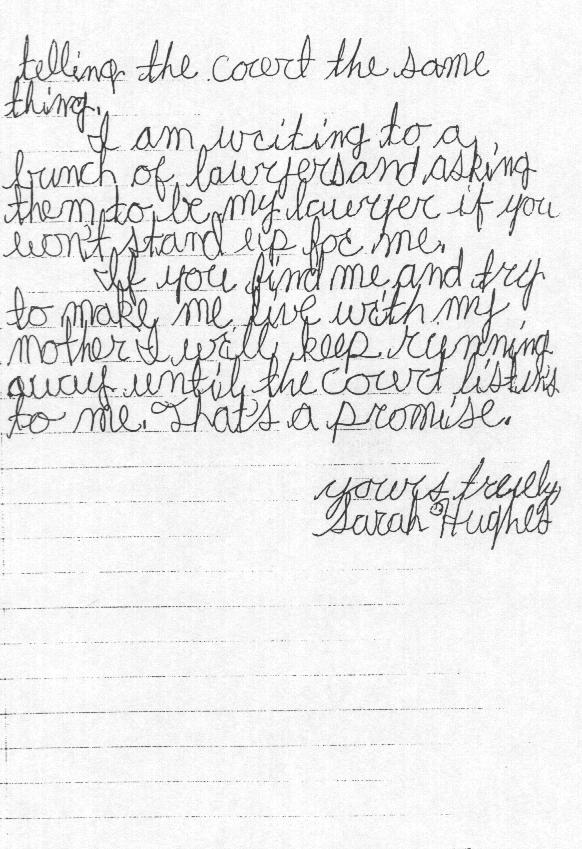 telling the court the same
thing.
I am writing to a
bunch of lawyers and asking
them to be my lawyer if you
won't stand up for me.
If you find me and try
to make me live with my
mother I will keep running
away until the court listens
to me. That's a promise.
yours truely
Sarah Hughes